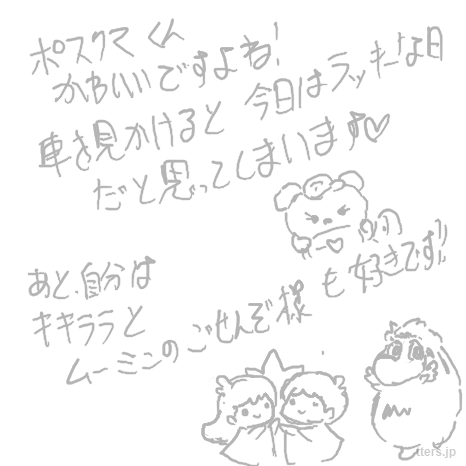 ポスクマくん
かわいいですよね!
車を見かけると 今日はラッキーな日
だと思ってしまいます♡
あと、自分は
キキララと
ムーミンのごせんぞ様も好きです!!
tters.jp